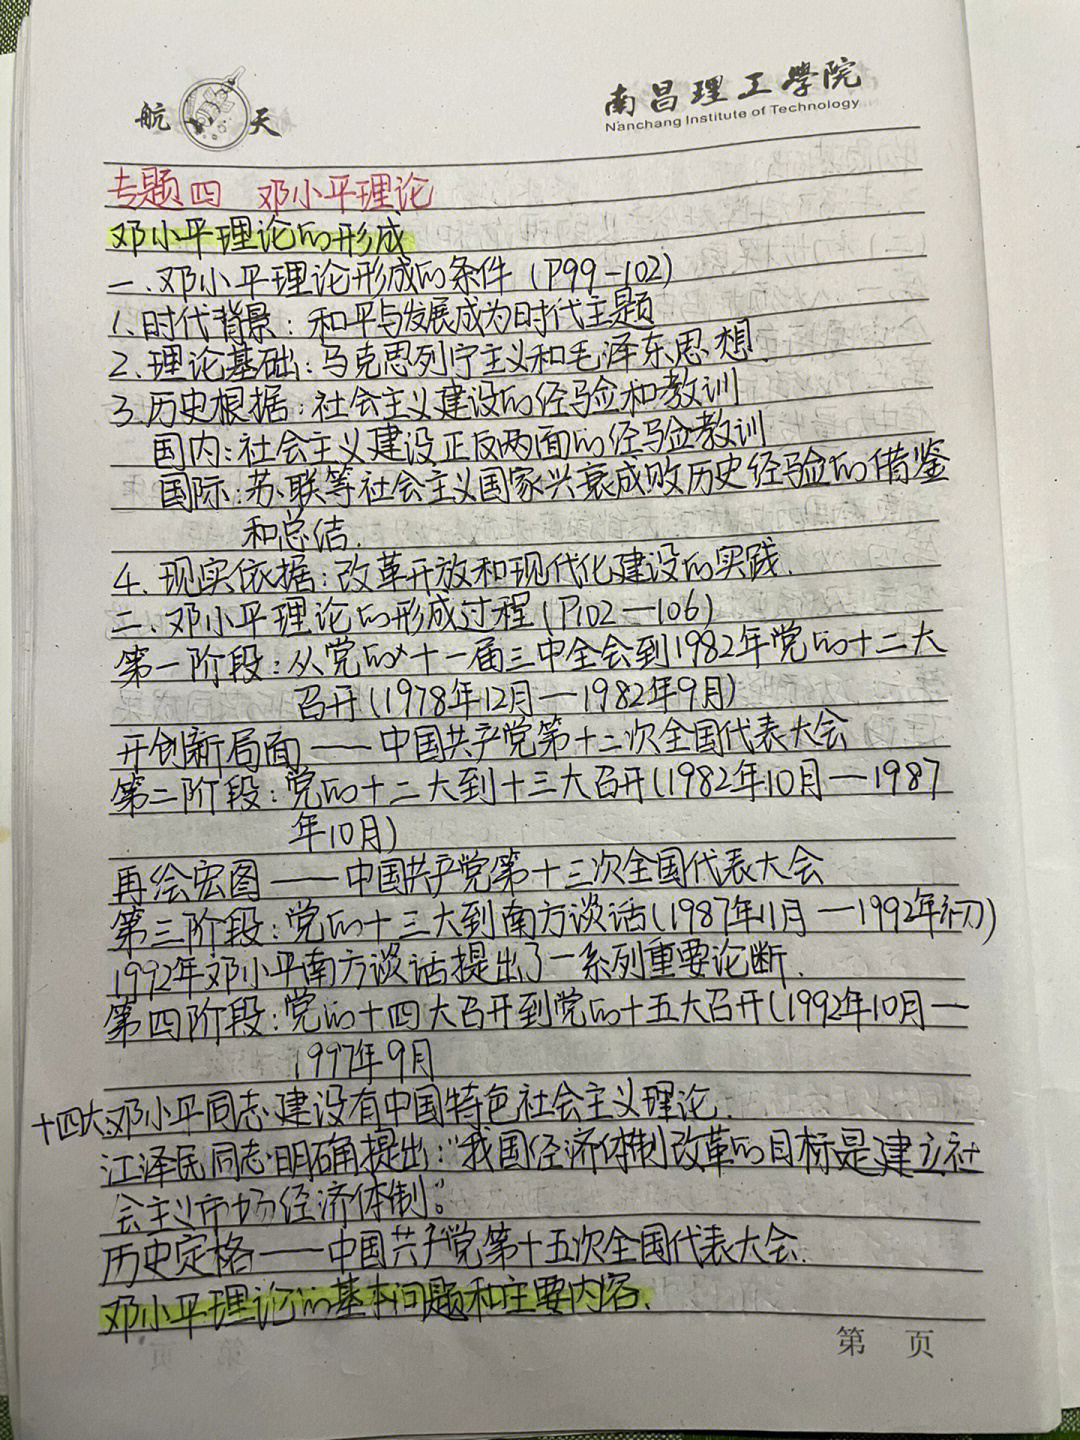 航天
南昌理工學院
Nanchang Institute of Technology
专题四 邓小平理论
邓小平理论的形成
一.邓小平理论形成的条件(P99-102)
1.时代背景:和平与发展成为时代主题
2.理论基础:马克思列宁主义和毛泽东思想.
3.历史根据:社会主义建设的经验和教训
国内:社会主义建设正反两面的经验教训
国际:苏联等社会主义国家兴衰成败历史经验的借鉴
和总结.
4.现实依据:改革开放和现代化建设的实践.
二.邓小平理论的形成过程(P102—106)
第一阶段:从党的十一届三中全会到1982年党的十二大
召开(1978年12月—1982年9月)
开创新局面——中国共产党第十二次全国代表大会
第二阶段:党的十二大到十三大召开(1982年10月—1987
年10月)
再绘宏图——中国共产党第十三次全国代表大会
第三阶段:党的十三大到南方谈话(1987年11月—1992年初)
1992年邓小平南方谈话提出了一系列重要论断.
第四阶段:党的十四大召开到党的十五大召开(1992年10月—
1997年9月
十四大:邓小平同志建设有中国特色社会主义理论.
江泽民同志明确提出:"我国经济体制改革的目标是建立社
会主义市场经济体制。"
历史定格——中国共产党第十五次全国代表大会.
邓小平理论的基本问题和主要内容.
第 页